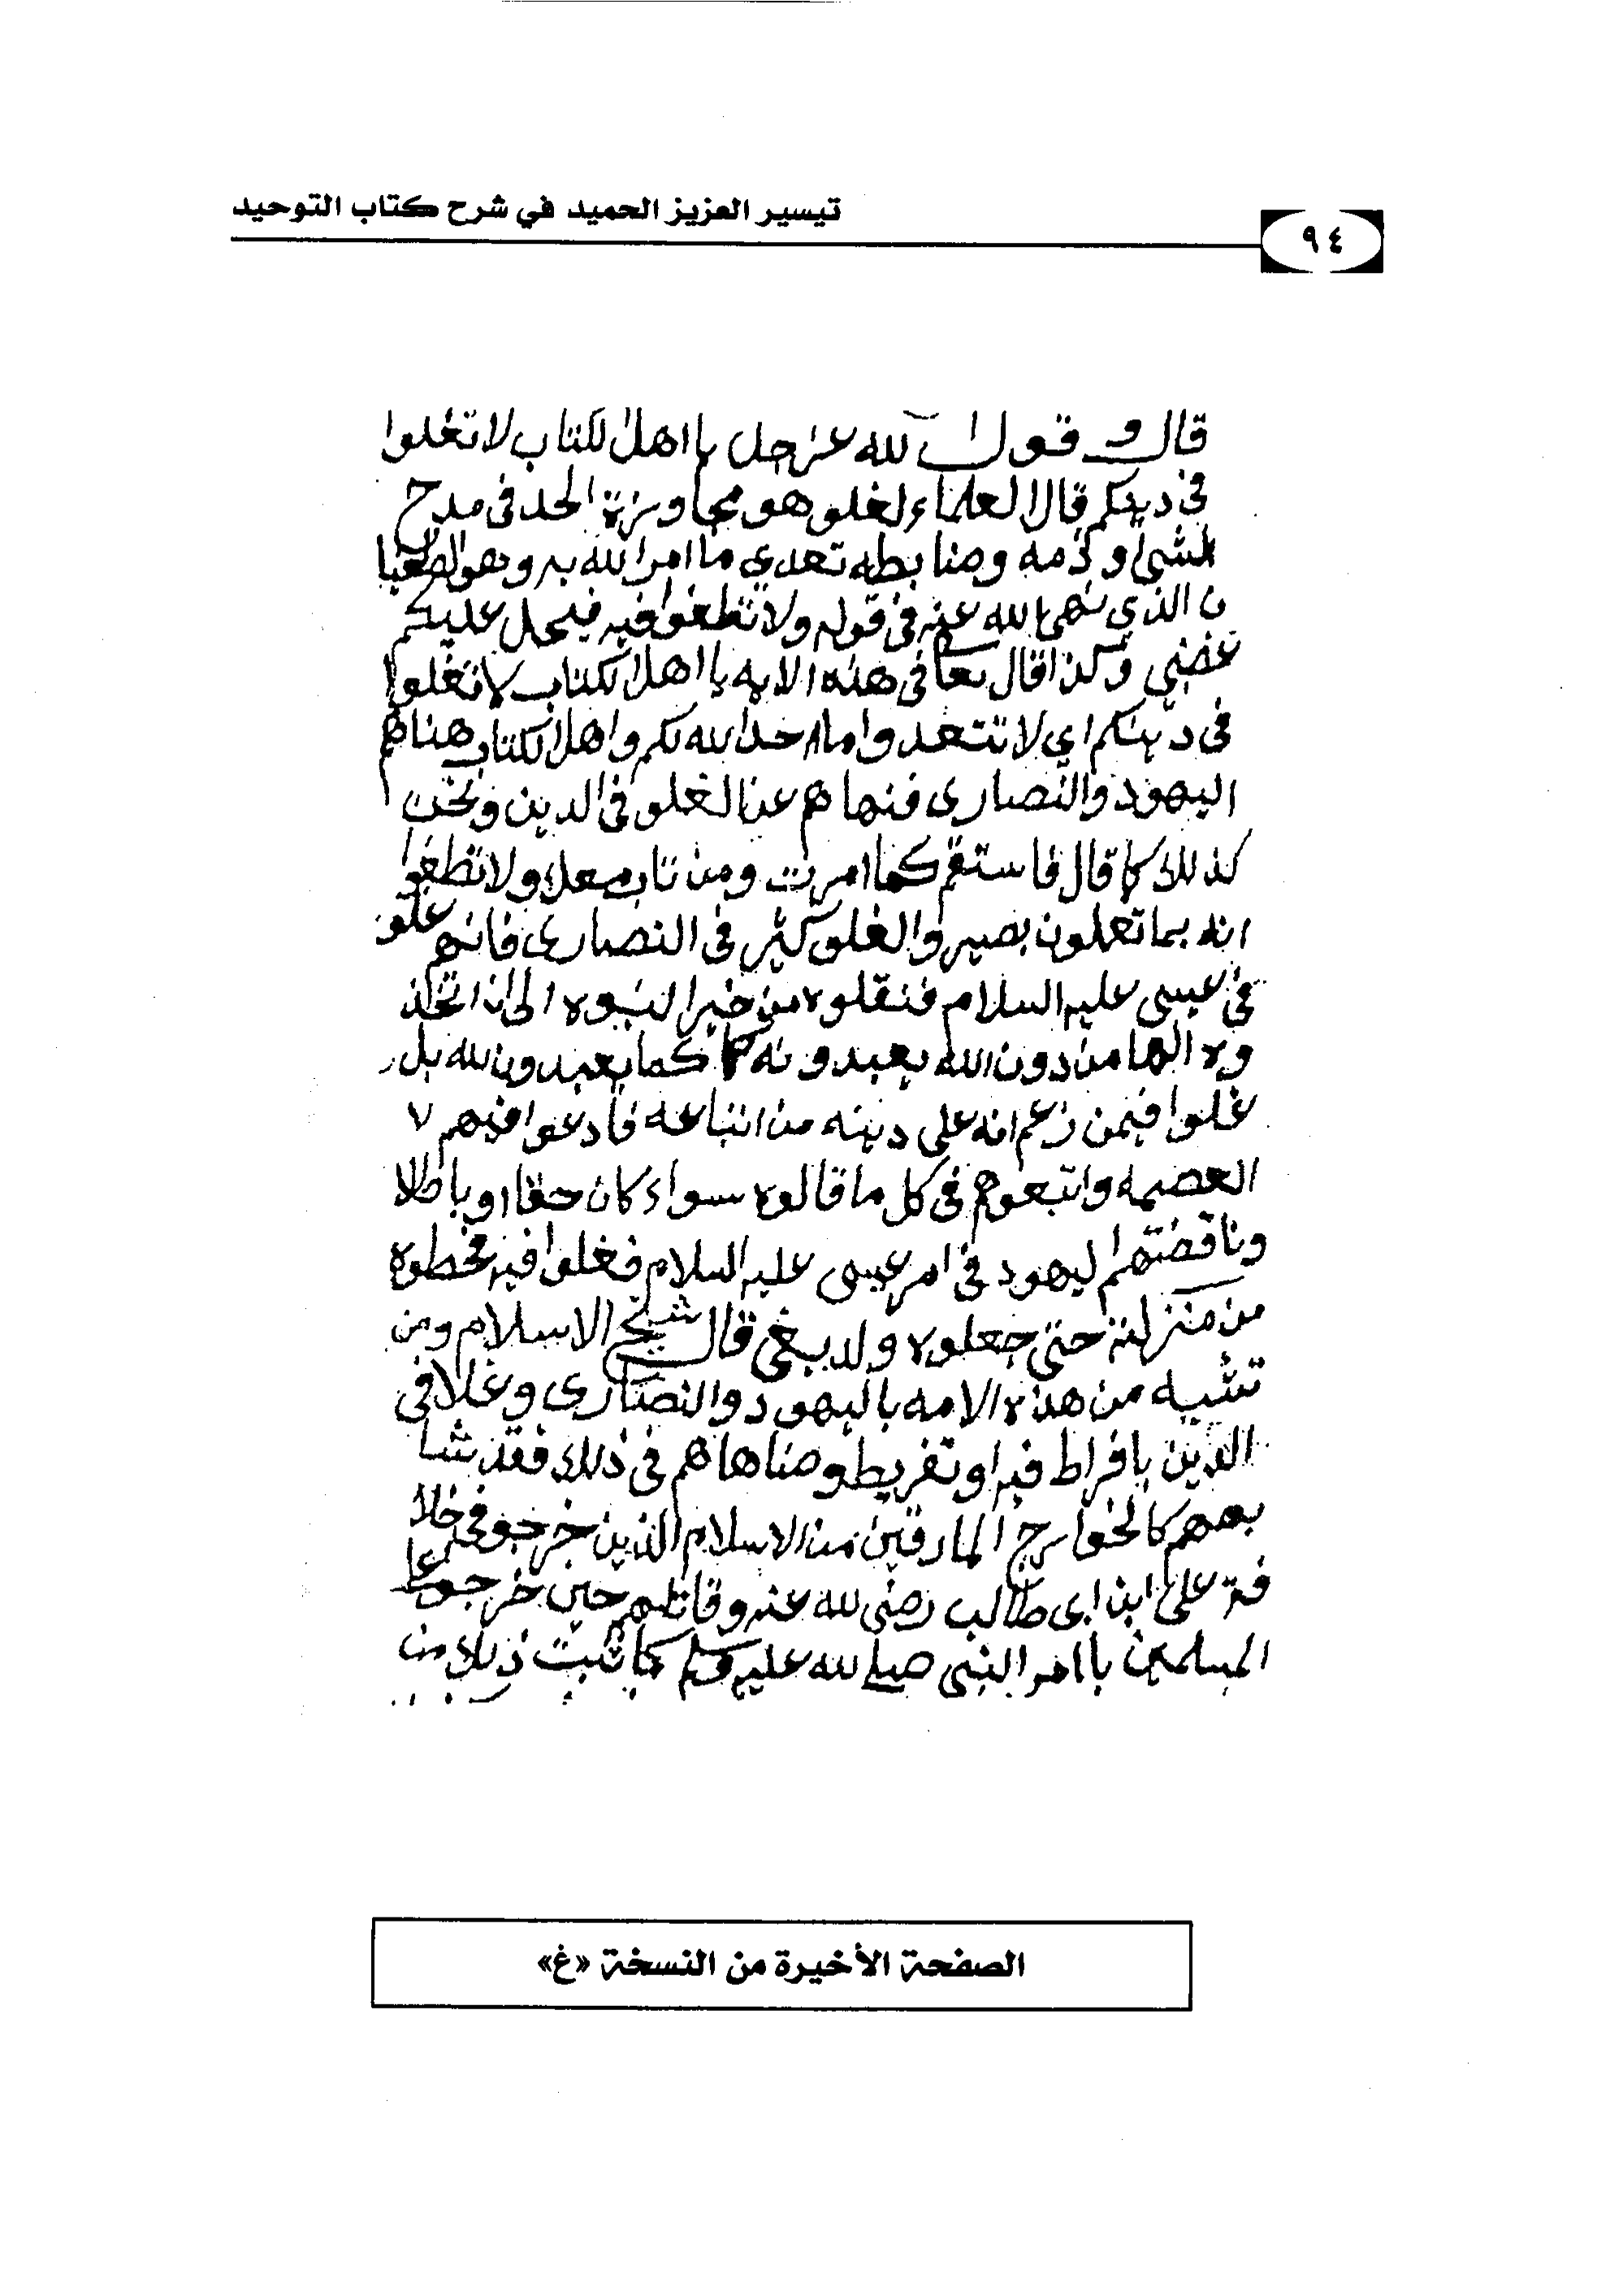 تيسير العزيز الحميد في شرح كتاب التوحيد
٩٤
قال وقول الله عز وجل يا اهل الكتاب لا تغلوا
في دينكم قال العلماء الغلو هو مجاوزة الحد في مدح
الشئ او ذمه وضابطه تعدي ما امر الله به وهو الطغيا
ن الذي نهى الله عنه في قوله ولا تطغوا فيه فيحل عليكم
غضبي وكذا قال تعا في هذه الايه يا اهل الكتاب لا تغلوا
في دينكم اي لا تتعدوا ما حد الله لكم واهل الكتاب هنا هم
اليهود والنصارى فنهاهم عن الغلو في الدين ونحن
كذلك كما قال فاستقم كما امرت ومن تاب معك ولا تطغوا
انه بما تعملون بصير والغلو كثير في النصارى فانهم غلو
في عيسى عليه السلام فنقلوه من خير النبوه الى ان اتخذ
وه الها من دون الله يعبدونه كما يعبدون الله بل
غلوا فيمن زعم انه على دينه من اتباعه فادعوا فيهم
العصمه واتبعوهم في كل ما قالوه سواء كان حقا او باطلا
وناقضتهم اليهود في امر عيسى عليه السلام فغلوا فيه فحطوه
من منزلته حتى جعلوه ولد بغي قال شيخ الاسلام ومن
تشبه من هذه الامه باليهود والنصارى وغلا في
الدين بافراط فيه او تفريط وضاهاهم في ذلك فقد شا
بههم كالخوارج المارقين من الاسلام الذين خرجو في خلا
فة علي ابن ابى طالب رضي الله عنه وقاتلهم حين خرجو على
المسلمين باامر النبي صلى الله عليه وسلم كما ثبت ذلك من
الصفحة الأخيرة من النسخة «غ»